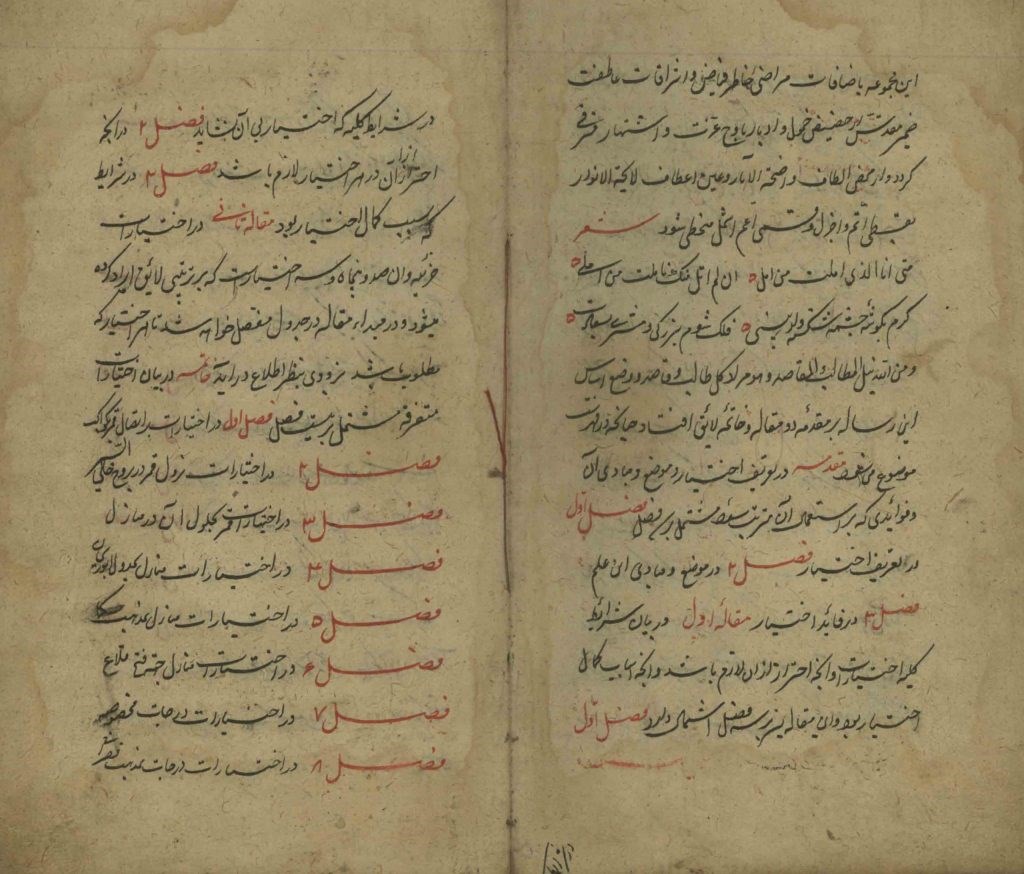 این مجموعه باضافات مراضی خاطر فیاض و اشراقات عاطفت
ضمیر مقدس از حضیض خمول و ادبار باوج عزت و اشتهار مترقی
کردد و از مفیض الطاف واضحة الآثار و عین اعطاف لایحة الانوار
بقسطی اتم و اجزل و قسمی اعم اشمل محظی شود شعر
متی انا الذی املت من امل ان لم انل منک ما املت من املی
کرم بکوشهٔ چشم شکسته وار ببینی فلک شوم ببزرکی و مشتری بسعادت
و من الله نیل المطالب و المقاصد و هو مراد کل طالب و قاصد و وضع اساس
این رساله بر مقدمه دو مقاله و خاتمه لایق افتاد چنانکه در فهرست
موضوع می شود مقدمه در تعریف اختیار و موضع و مبادی آن
و فوایدی که بر استعمال آن مترتب شود مشتمل بر سه فصل فصل اول
در تعریف اختیار فصل ۲ در موضع و مبادی این علم
فصل ۳ در فائده اختیار مقالهٔ اول در بیان شرائط
کلیه اختیارات و آنچه احتراز از ان لازم باشد و آنچه اسباب کمال
اختیار بود و این مقاله نیز بر سه فصل اشتمال دارد فصل اول
در شرایط کلیه که اختیار بی آن نشاید فصل ۲ در آنچه
احتراز از آن در هر اختیار لازم باشد فصل ۳ در شرایط
که سبب کمال اختیار بود مقاله ثانی در اختیارات
جزئیه و ان صد و پنجاه و سه اختیارست که بر ترتیبی لایق ایراد کرده
میشود و در مبداء مقاله در جدول مفصل خواهد شد تا هر اختیار که
مطلوب باشد بزودی بنظر اطلاع در آید خاتمه در بیان اختیارات
متفرقه مشتمل بر بیست فصل فصل اول در اختیارات بر اتصال قمر بکواکب
فصل ۲ در اختیارات نزول قمر در بروج
فصل ۳ در اختیارات قمر بحلول ان در منازل
فصل ۴ در اختیارات منازل بجدول
فصل ۵ در اختیارات منازل بمذهب
فصل ۶ در اختیارات منازل جهة فتح قلاع
فصل ۷ در اختیارات درجات مخصوصه
فصل ۸ در اختیارات درجات بمذهب